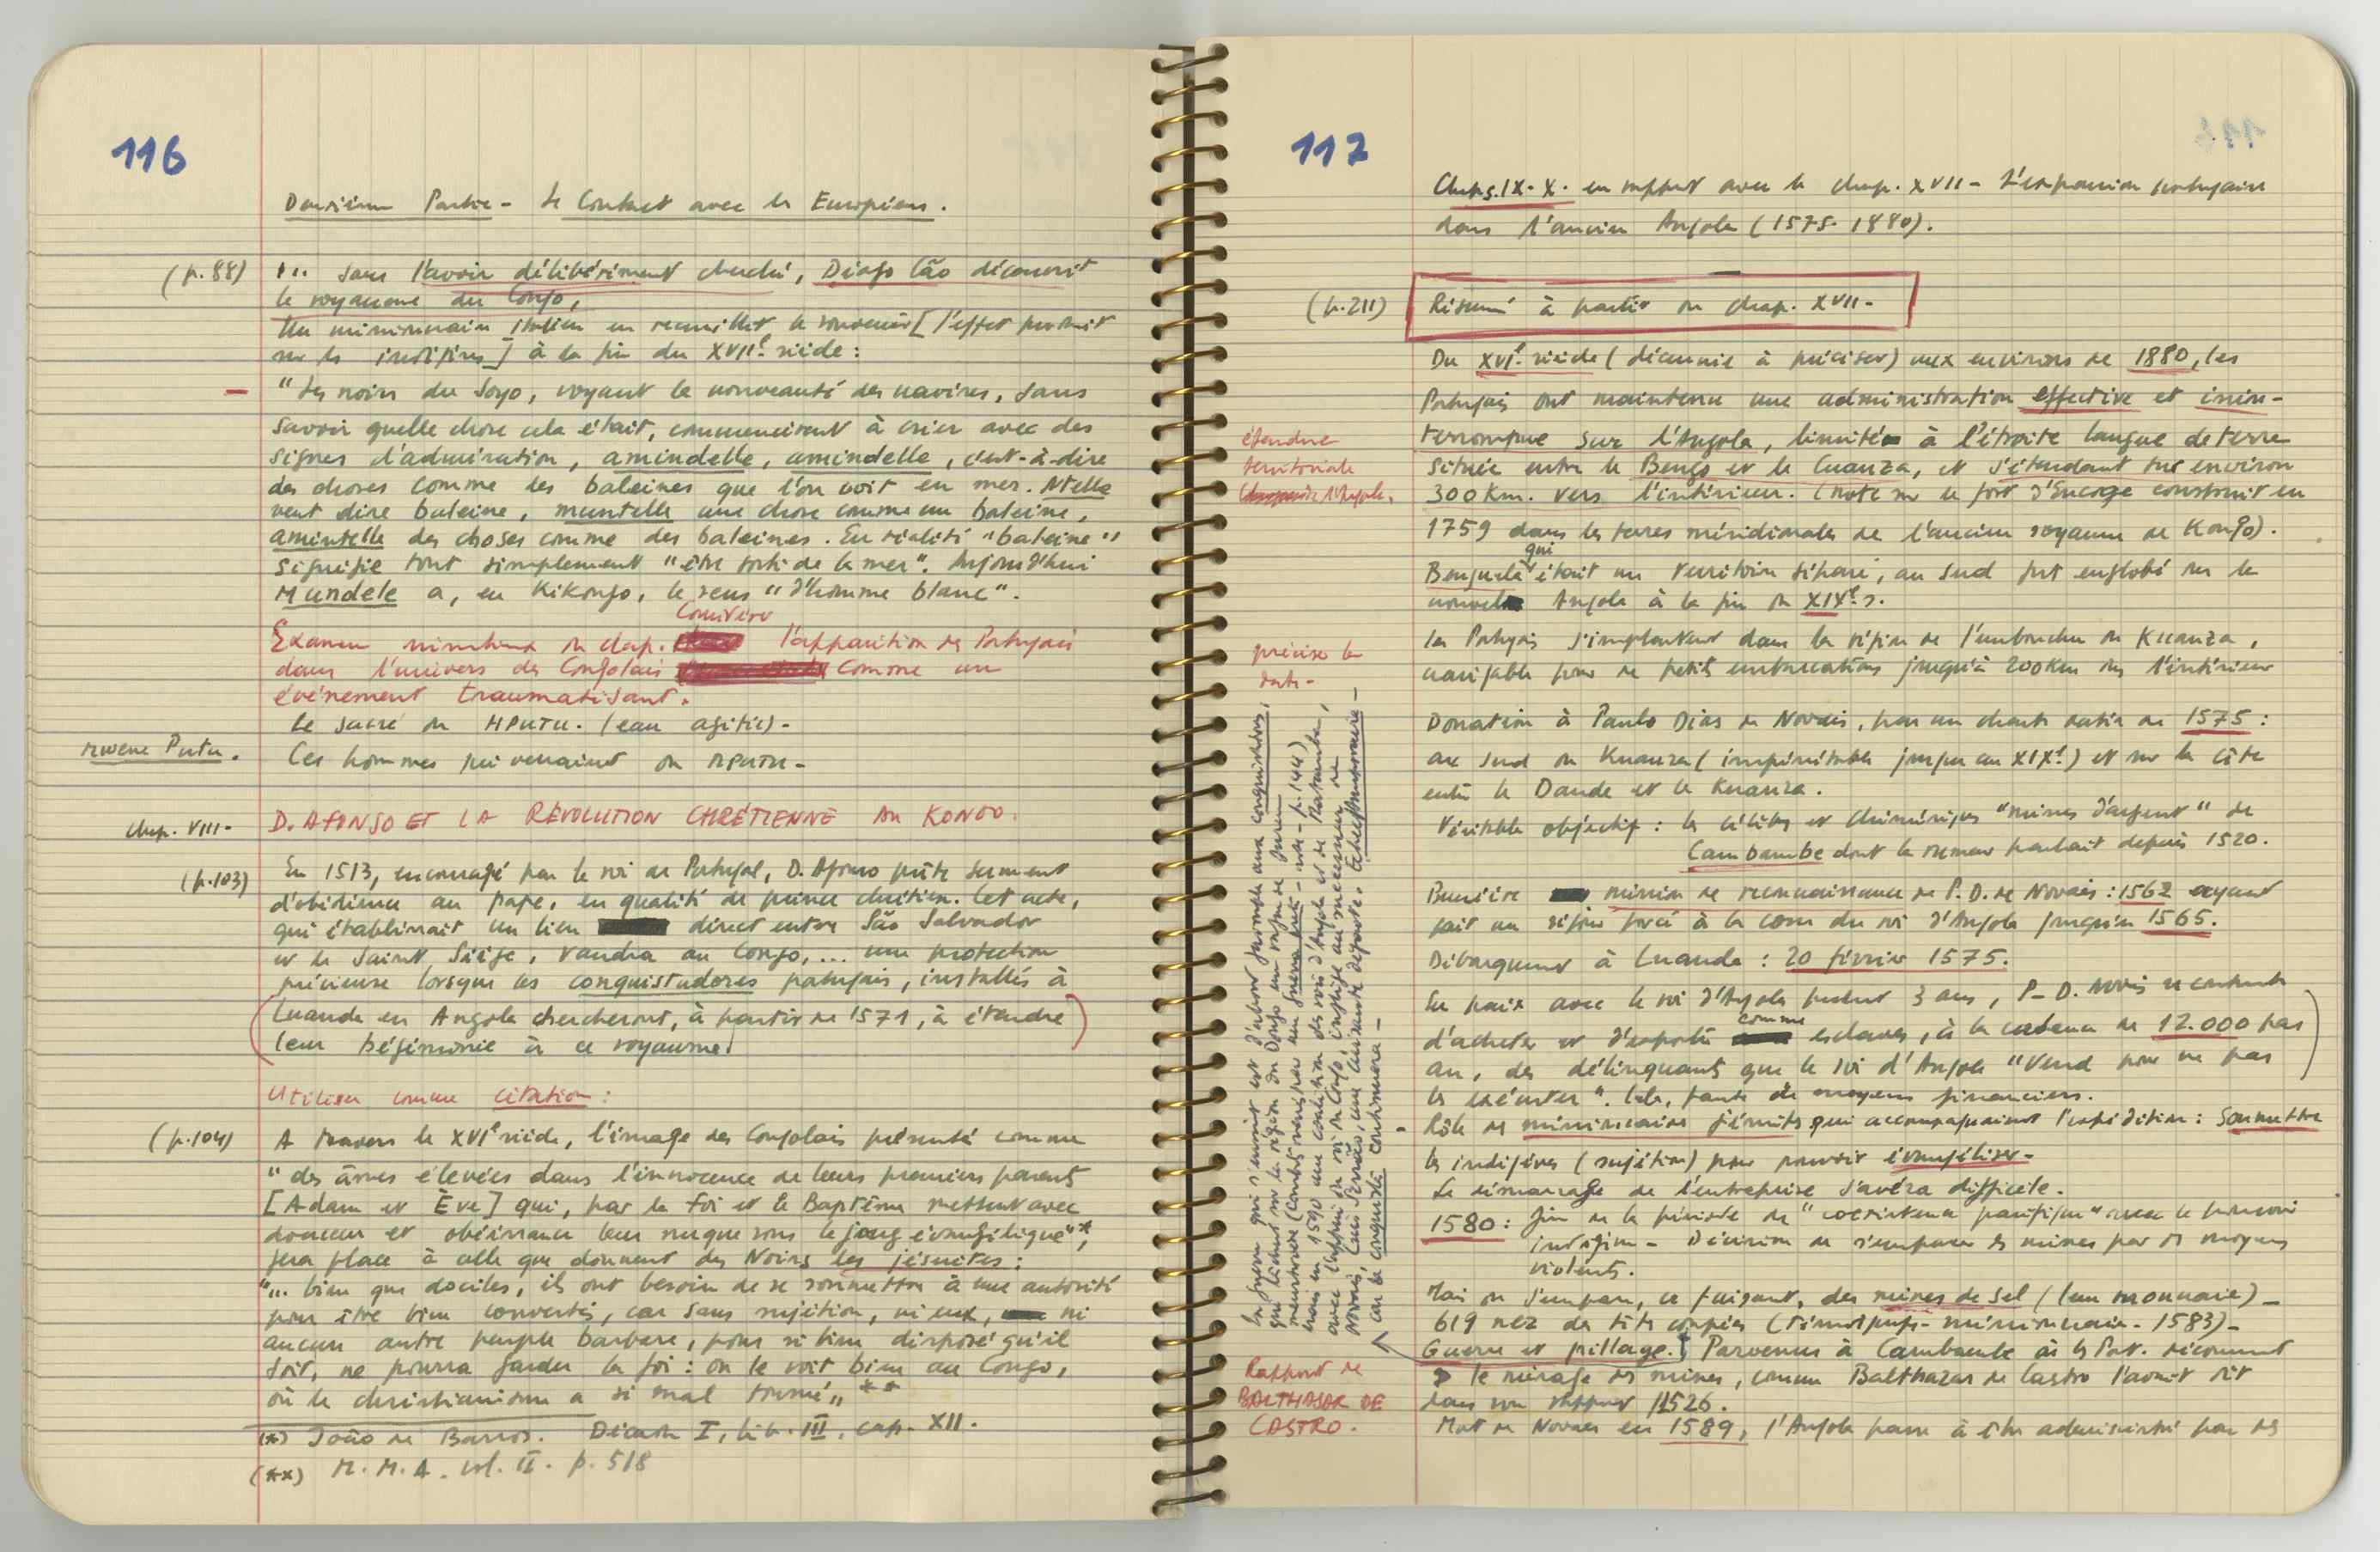 116
Deuxième Partie - Le Contact avec les Européens.
(p.88) "... sans l'avoir délibérément cherché, Diogo Cão découvrit
le royaume du Congo,
Un missionnaire italien en recueillit le souvenir [l'effet produit
sur les indigènes] à la fin du XVIIe siècle :
- "Les noirs du Soyo, voyant la nouveauté des navires, sans
savoir quelle chose cela était, commencèrent à crier avec des
signes d'admiration, amindelle, amindelle, c'est-à-dire
des choses comme les baleines que l'on voit en mer. Ntelle
veut dire baleine, muntelle une chose comme un baleine,
amintelle des choses comme des baleines. En réalité "baleine"
signifie tout simplement "être sorti de la mer". Aujourd'hui
Mundele a, en Kikongo, le sens "d'homme blanc".
Examen minutieux du chap. Convivre l'apparition des Portugais
dans l'univers des Congolais comme un
événement traumatisant.
Le sacré du MPUTU. (eau agitée) -
Mwene Putu. Ces hommes qui venaient du MPUTU -
chap. VIII - D. AFONSO ET LA RÉVOLUTION CHRÉTIENNE AU KONGO.
(p.103) En 1513, encouragé par le roi de Portugal, D. Afonso prête serment
d'obédience au pape, en qualité de prince chrétien. Cet acte,
qui établissait un lien direct entre São Salvador
et le Saint Siège, vaudra au Congo, ... une protection
précieuse lorsque les conquistadores portugais, installés à
(Luanda en Angola chercheront, à partir de 1571, à étendre
leur hégémonie à ce royaume.)
Utiliser comme citation :
(p.104) A travers le XVIe siècle, l'image des Congolais présenté comme
"des âmes élevées dans l'innocence de leurs premiers parents
[Adam et Ève] qui, par la foi et le Baptême mettent avec
douceur et obéissance leur nuque sous le joug évangélique"*,
fera place à celle que donnent des Noirs les jésuites :
"... bien que dociles, ils ont besoin de se soumettre à une autorité
pour être bien convertis, car sans sujétion, ni eux, ni
aucun autre peuple barbare, pour si bien disposé qu'il
soit, ne pourra garder la foi : on le voit bien au Congo,
où le christianisme a si mal tourné" **
(*) João de Barros. Décade I, liv. III, cap. XII.
(**) M. M. A. vol. II. p. 518
117
Chaps. IX - X. en rapport avec le chap. XVII - L'expansion portugaise
dans l'ancien Angola (1575-1880).
(p.211) Résumé à partir du chap. XVII -
Du XVIe siècle (décennie à préciser) aux environs de 1880, les
Portugais ont maintenu une administration effective et inin-
étendue
territoriale
de l'Angola,
terrompue sur l'Angola, limitée à l'étroite langue de terre
située entre le Bengo et le Cuanza, et s'étendant sur environ
300 Km. vers l'intérieur. (note sur le fort d'Encoge construit en
1759 dans les terres méridionales de l'ancien royaume de Kongo).
Benguela qui était un territoire séparé, au sud fut englobé sur le
nouvel Angola à la fin du XIXe s.
préciser la
date -
Les Portugais s'implantent dans la région de l'embouchure du Kuanza,
navigable pour de petites embarcations jusqu'à 200 Km vers l'intérieur
Donation à Paulo Dias de Novais, par une charte datée de 1575 :
au sud du Kuanza (impénétrable jusqu'au XIXe) et sur la côte
entre le Dande et le Kuanza.
Véritable objectif : les célèbres et chimériques "mines d'argent" de
Cambambe dont la rumeur parlait depuis 1520.
Première mission de reconnaissance de P. D. de Novais : 1562 ayant
fait un séjour forcé à la cour du roi d'Angola jusqu'en 1565.
Débarquement à Luanda : 20 février 1575.
En paix avec le roi d'Angola pendant 3 ans, P. D. Novais se contente
d'acheter et d'exporter comme esclaves, à la cadence de 12.000 par
an, des délinquants que le roi d'Angola "vend pour ne pas
les exécuter". Cela, faute de moyens financiers.
- Rôle des missionnaires jésuites qui accompagnaient l'expédition : Soumettre
les indigènes (sujétion) pour pouvoir évangéliser -
Le démarrage de l'entreprise s'avéra difficile.
1580 : fin de la période de "coexistence pacifique" avec le pouvoir
indigène - Décision de s'emparer des mines par des moyens
violents.
Mais on s'empare, ce faisant, des mines de sel (leur monnaie) -
619 nez des têtes coupées (témoignage - missionnaire - 1583) -
Guerre et pillage. Parvenus à Cambambe où les Port. découvrent
le mirage des mines, comme Balthazar de Castro l'avait dit
dans son rapport 1526.
Rapport de
BALTHASAR DE
CASTRO.
Mort de Novais en 1589, l'Angola passe à être administré par des
La guerre qui s'ensuit est d'abord favorable aux conquistadores,
qui tiennent sur la région du Dongo un régime de
meurtrière (combats menés par une guerra preta - voir - p.144)
mais en 1590 une coalition des rois d'Angola et de Matamba,
avec l'appui du roi du Congo, inflige au successeur de
Novais, Luis Serrão, une cuisante défaite. Échec momentané -
car la conquista continuera -